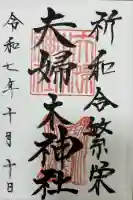 祈和合繁栄
夫婦木神社
令和七年十月十日